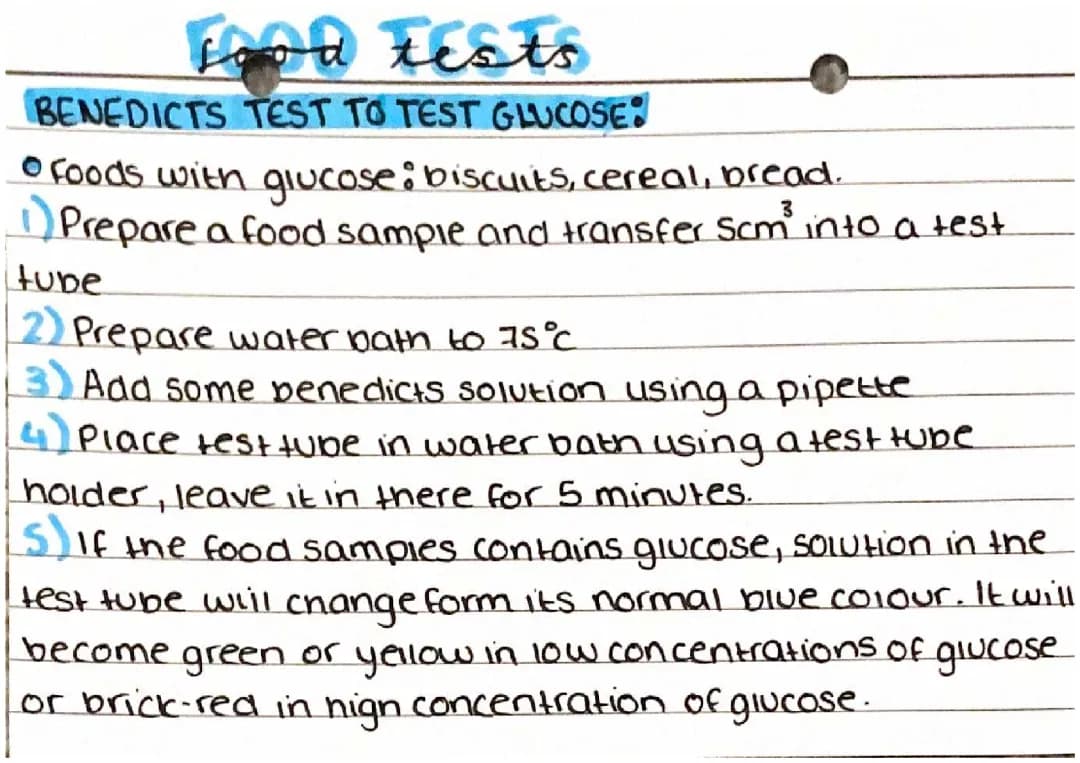 FOOD TESTS
food tests
BENEDICTS TEST TO TEST GLUCOSE:
• Foods with glucose: biscuits, cereal, bread.
1) Prepare a food sample and transfer 5cm³ into a test
tube
2) Prepare water bath to 75°c
3) Add some benedicts solution using a pipette
4) Place test tube in water bath using a test tube
holder, leave it in there for 5 minutes.
5) If the food samples contains glucose, solution in the
test tube will change form its normal blue colour. It will
become green or yellow in low concentrations of glucose
or brick-red in high concentration of glucose.